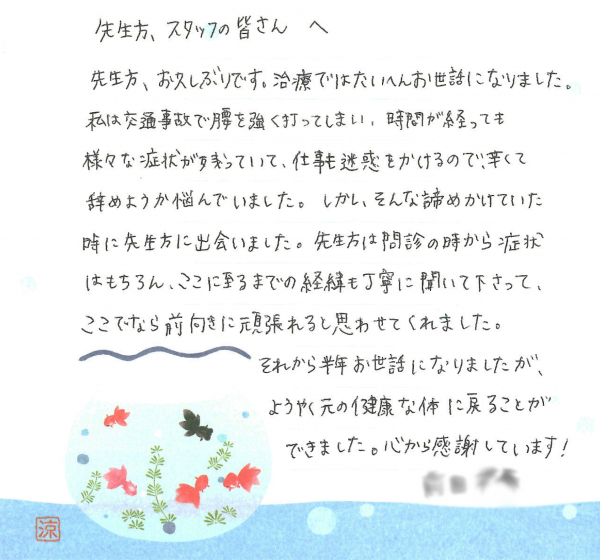 先生方、スタッフの皆さん へ
先生方、お久しぶりです。治療ではたいへんお世話になりました。
私は交通事故で腰を強く打ってしまい、時間が経っても
様々な症状が残っていて、仕事も迷惑をかけるので、辛くて
辞めようか悩んでいました。しかし、そんな諦めかけていた
時に先生方に出会いました。先生方は問診の時から症状
はもちろん、ここに至るまでの経緯も丁寧に聞いて下さって、
ここでなら前向きに頑張れると思わせてくれました。
それから半年お世話になりましたが、
ようやく元の健康な体に戻ることが
できました。心から感謝しています!
涼